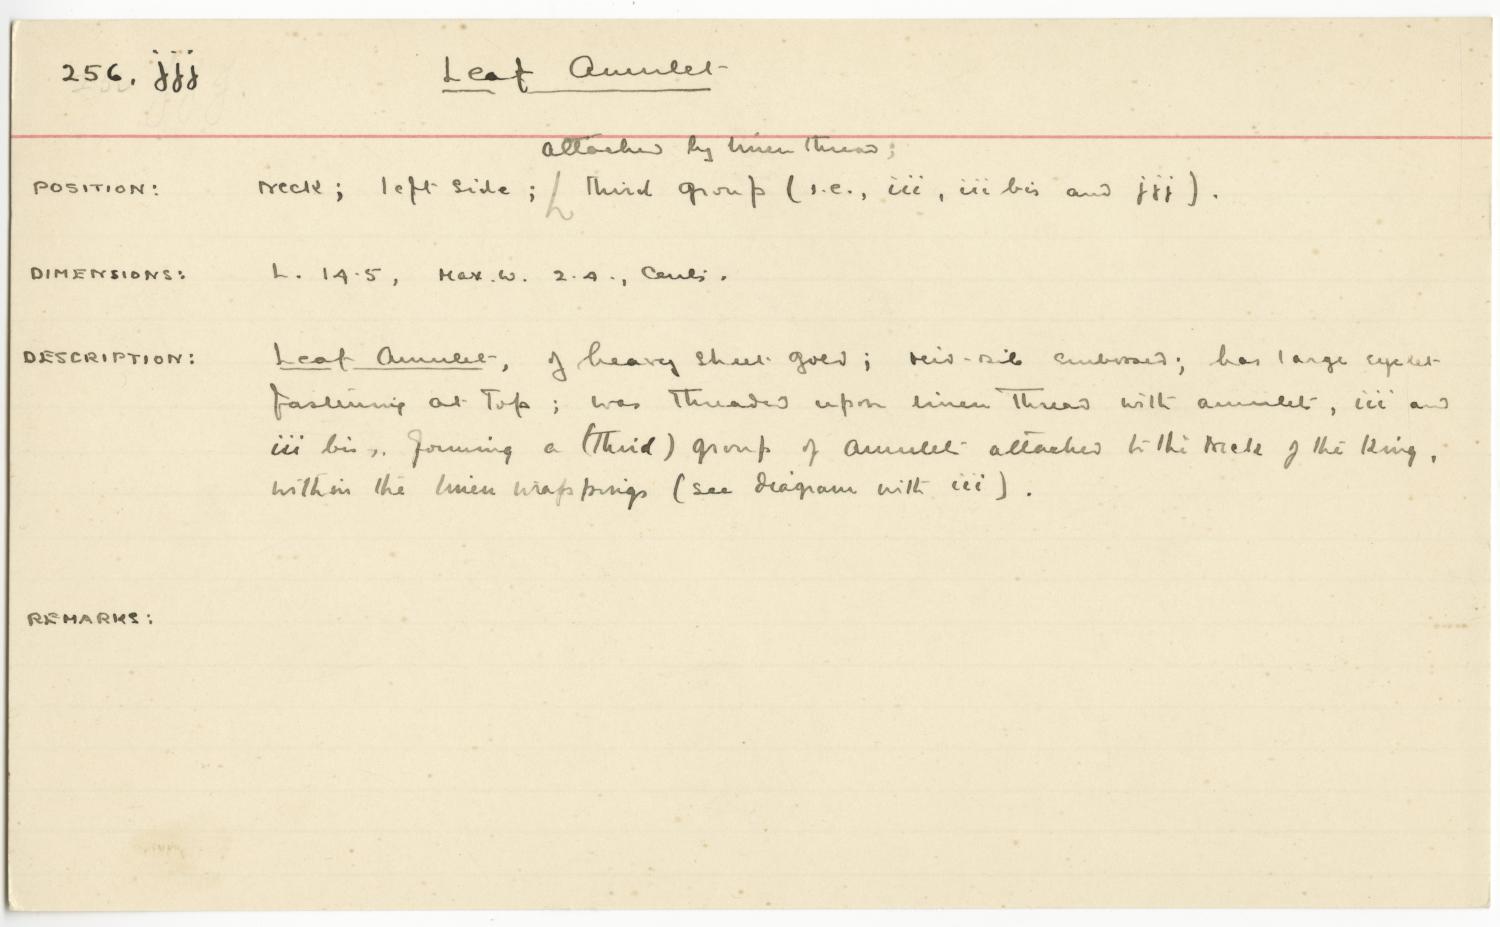 256. jjj Leaf Amulet
attached by linen thread;
POSITION: Neck; left side; third group (i.e., iii, iii bis and jjj).
DIMENSIONS: L. 14.5, Max.W. 2.4., Cents.
DESCRIPTION: Leaf Amulet, of heavy sheet gold; mid-rib embossed; has large eyelet
fastening at top; was threaded upon linen thread with amulet, iii and
iii bis, forming a (third) group of amulet attached to the Neck of the King,
within the linen wrappings (see diagram with iii).
REMARKS: